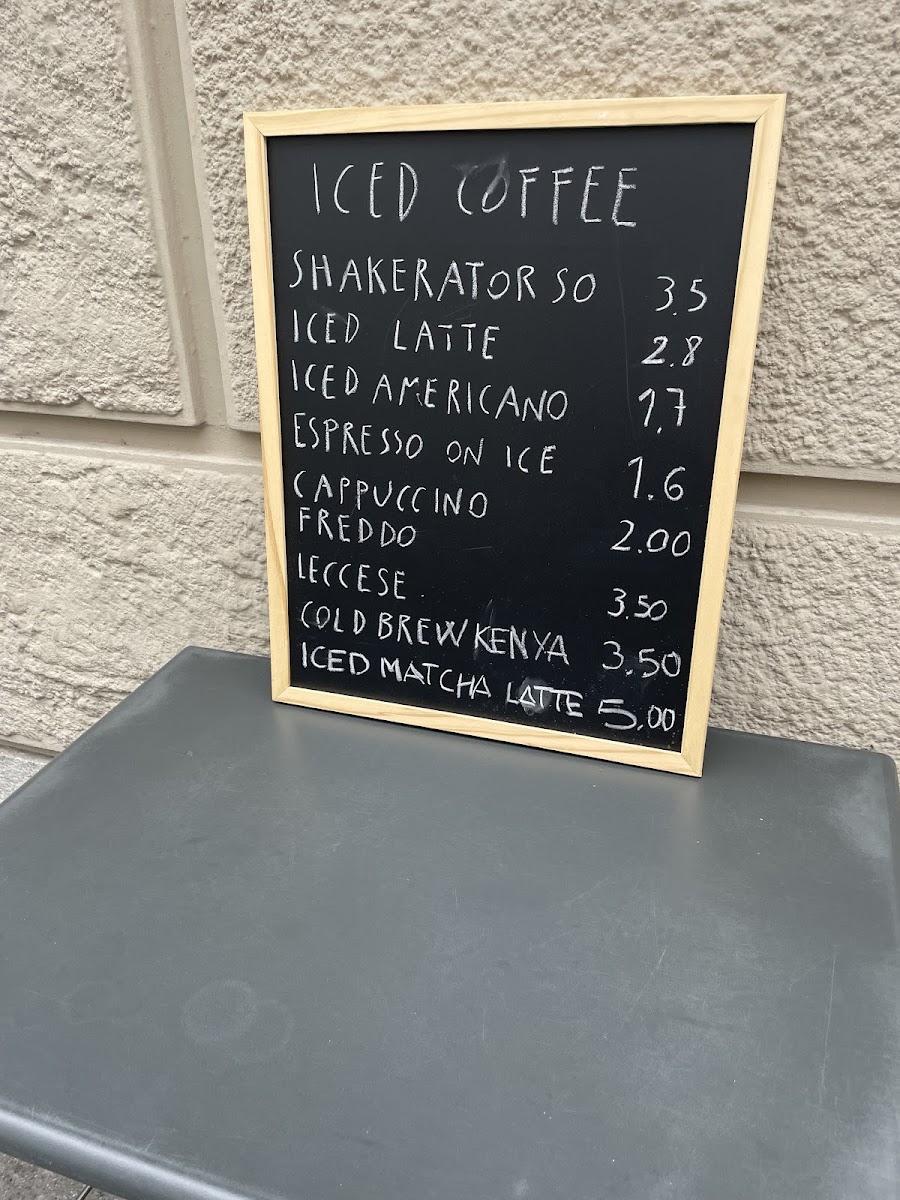 ICED COFFEE
SHAKERATOR SO 3.5
ICED LATTE 2.8
ICED AMERICANO 1,7
ESPRESSO ON ICE 1.6
CAPPUCCINO
FREDDO 2.00
LECCESE 3.50
COLD BREW KENYA 3,50
ICED MATCHA LATTE 5,00